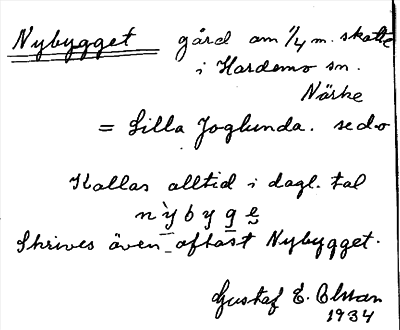 Nybygget gård om 1/4 m. skatte
i Hardemo sn.
Närke
= Lilla Joglunda. se d o
Kallas alltid i dagl. tal
nỳbyge
Skrives även oftast Nybygget.
Gustaf E. Olsson
1934